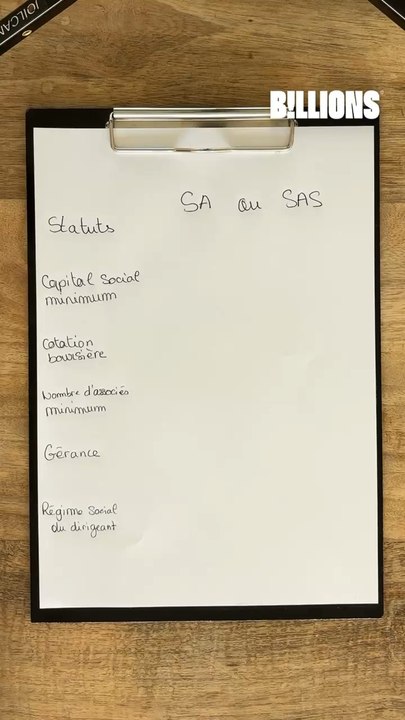 JOILCAM
B!LLIONS
SA ou SAS
Statuts
Capital Social
minimum
Cotation
boursière
Nombre d'associés
minimum
Gérance
Régime Social
du dirigeant